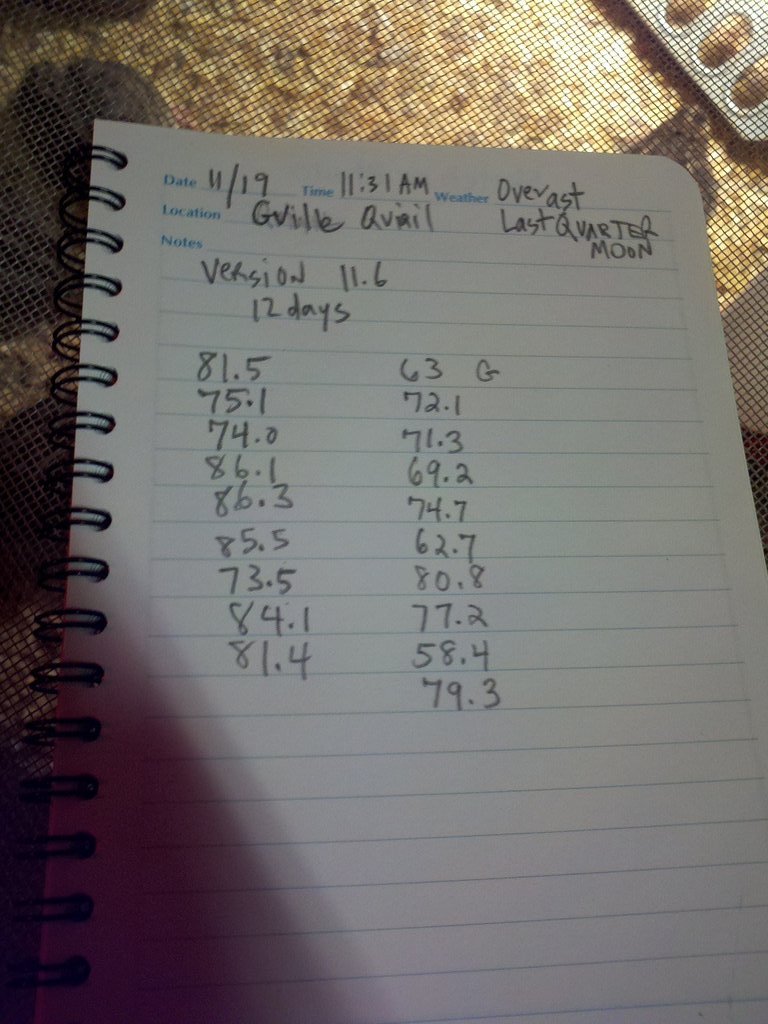 Date 11/19 Time 11:31 AM Weather Overast
Location Gville Quail Last QUARTER
MOON
Notes
VERSION 11.6
12 days
81.5 63 G
75.1 72.1
74.0 71.3
86.1 69.2
86.3 74.7
85.5 62.7
73.5 80.8
84.1 77.2
81.4 58.4
79.3